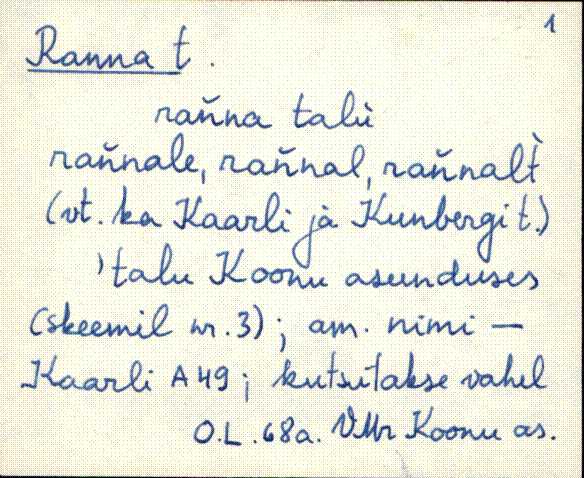 1
Ranna t.
rañna talù
rañnale, rañnal, rañnalt̀
(vt. ka Kaarli ja Kunbergi t.)
'talu Koonu asunduses
(skeemil nr. 3); am. nimi —
Kaarli A49; kutsutakse vahel
O.L. 68a. VMr Koonu as.